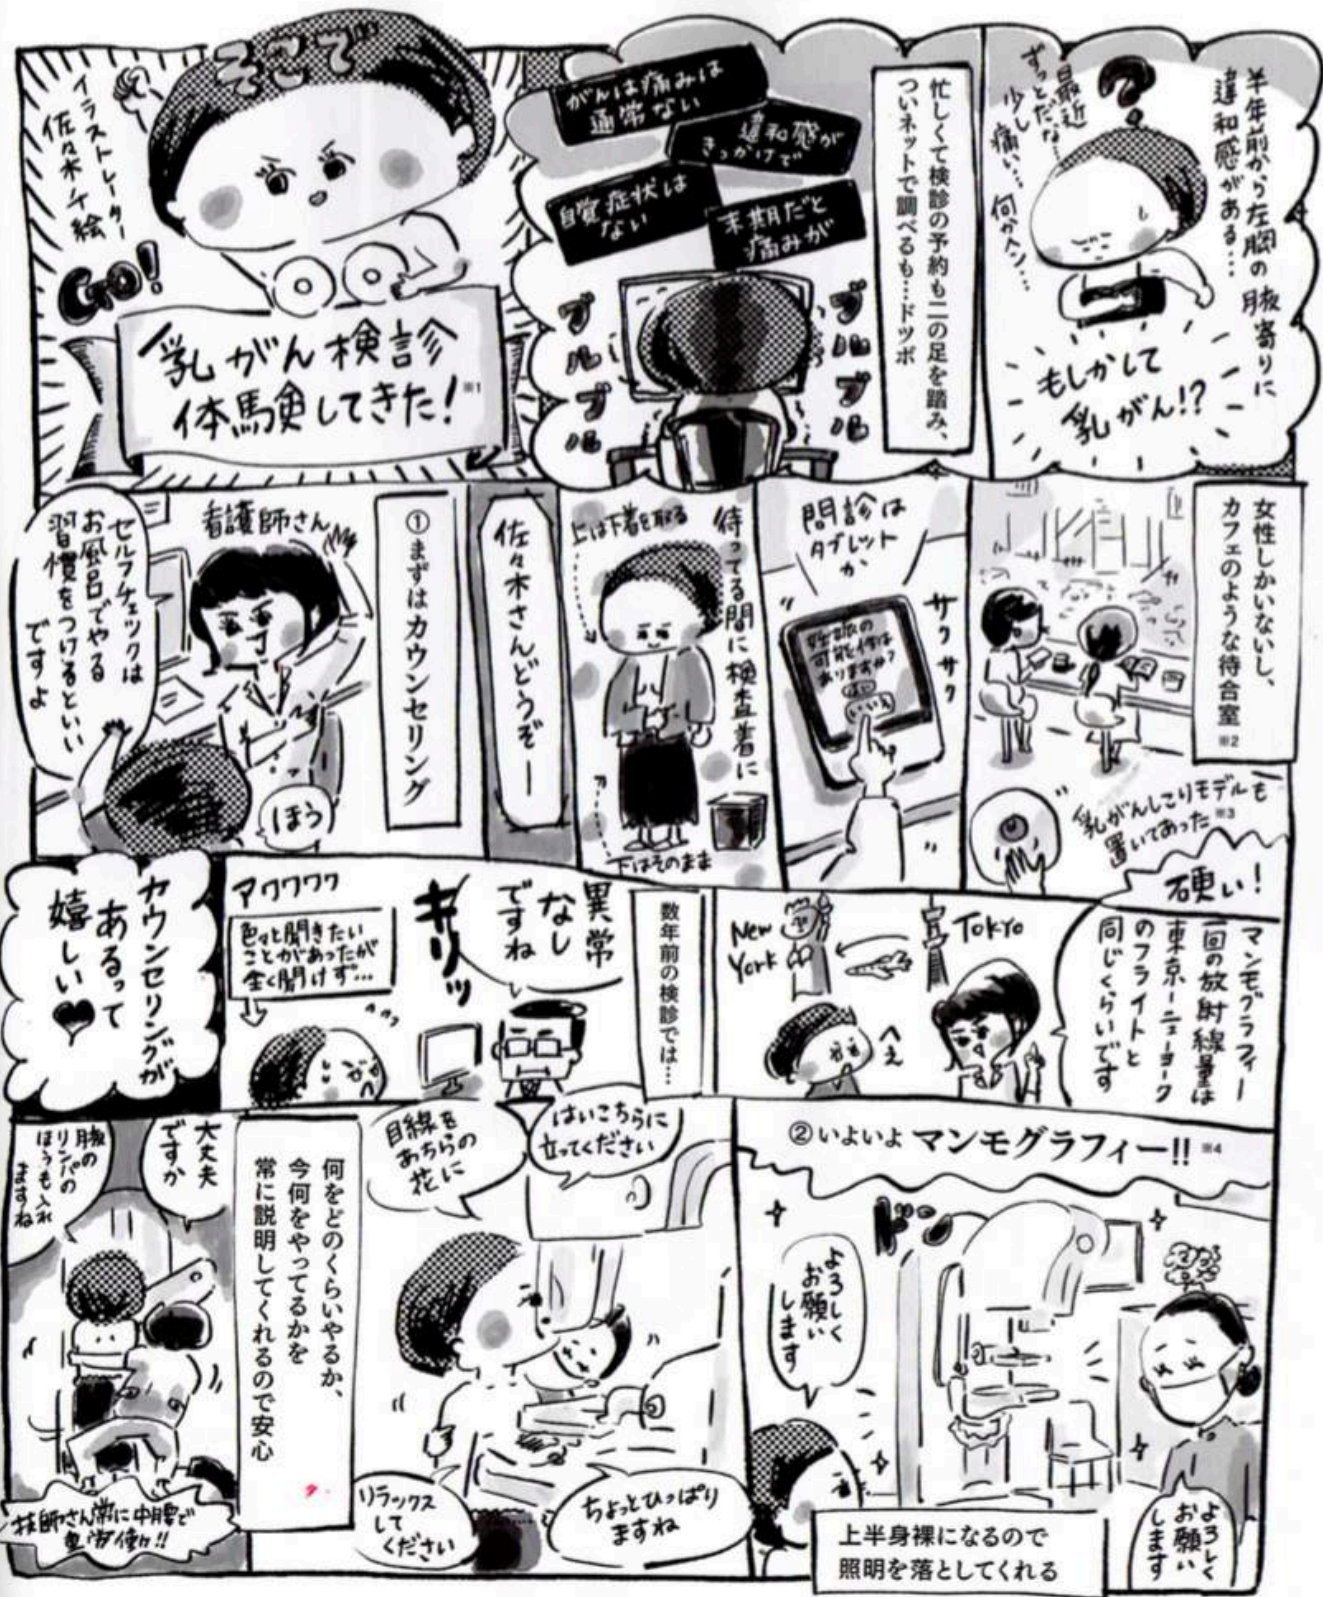 半年前から左胸の腋寄りに
違和感がある…
?
最近
ずっとだな…
少し
痛い…
何かヘン…
もしかして
乳がん!?
忙しくて検診の予約も二の足を踏み、
ついネットで調べるも…ドツボ
がんは痛みは
通常ない
違和感が
きっかけで
自覚症状は
ない
末期だと
痛みが
ブルブル
ブルブル
そこで
イラストレーター
佐々木千絵
GO!
乳がん検診
体験してきた!※1
女性しかいないし、
カフェのような待合室※2
乳がんしこりモデルも
置いてあった※3
硬い!
問診は
タブレット
か
サクサク
妊娠の
可能性は
ありますか?
はい
いいえ
待ってる間に検査着に
上は下着を取る
下はそのまま
佐々木さんどうぞー
①まずはカウンセリング
看護師さん
セルフチェックは
お風呂でやる
習慣をつけるといい
ですよ
ほう
マンモグラフィー
一回の放射線量は
東京ーニューヨーク
のフライトと
同じくらいです
TOKYO
New
York
へえ
数年前の検診では…
異常
なし
ですね
キリッ
アワワワワ
色々と聞きたい
ことがあったが
全く聞けず…
カウンセリングが
あるって
嬉しい♥
②いよいよマンモグラフィー!!※4
ドーン
よろしく
お願い
します
よろしく
お願い
します
上半身裸になるので
照明を落としてくれる
はいこちらに
立ってください
目線を
あちらの
花に
ちょっとひっぱり
ますね
リラックス
して
ください
何をどのくらいやるか、
今何をやってるかを
常に説明してくれるので安心
大丈夫
ですか
腋の
リンパの
ほうも入れ
ますね
技師さん常に中腰で
重労働!!